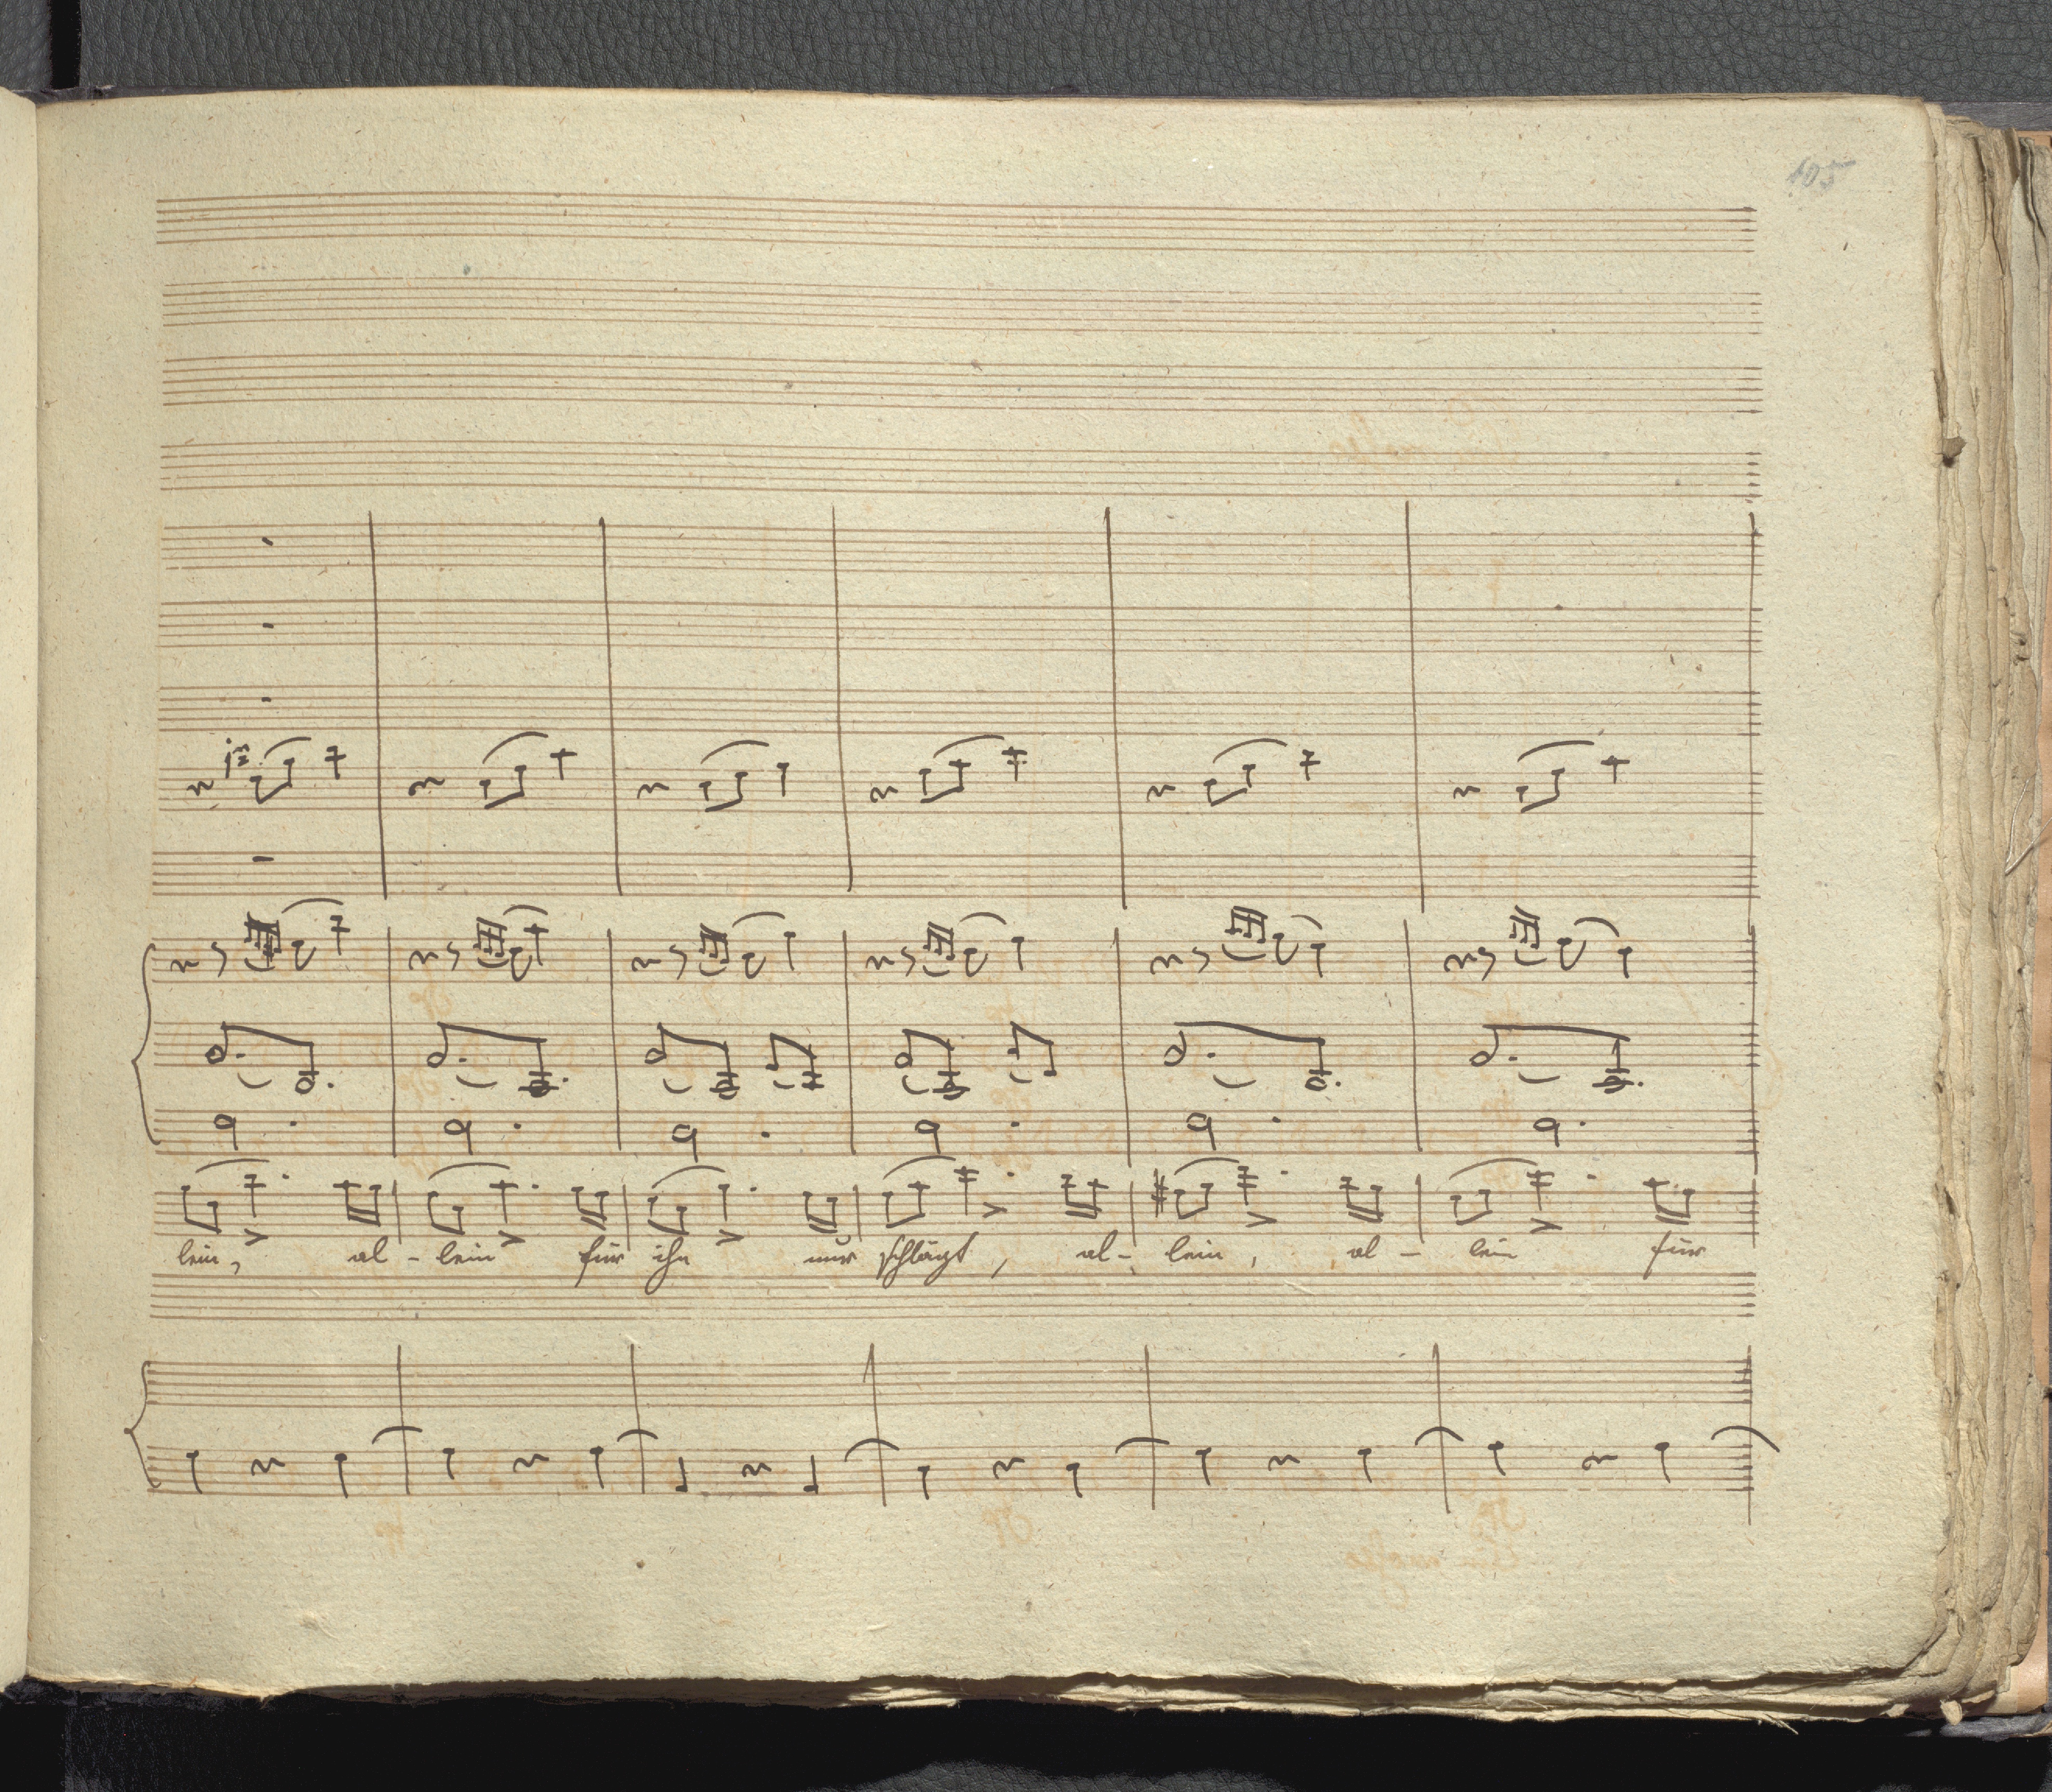 105
1mo
lein, al - lein für ihn nur schlägt, al - lein, al - lein für